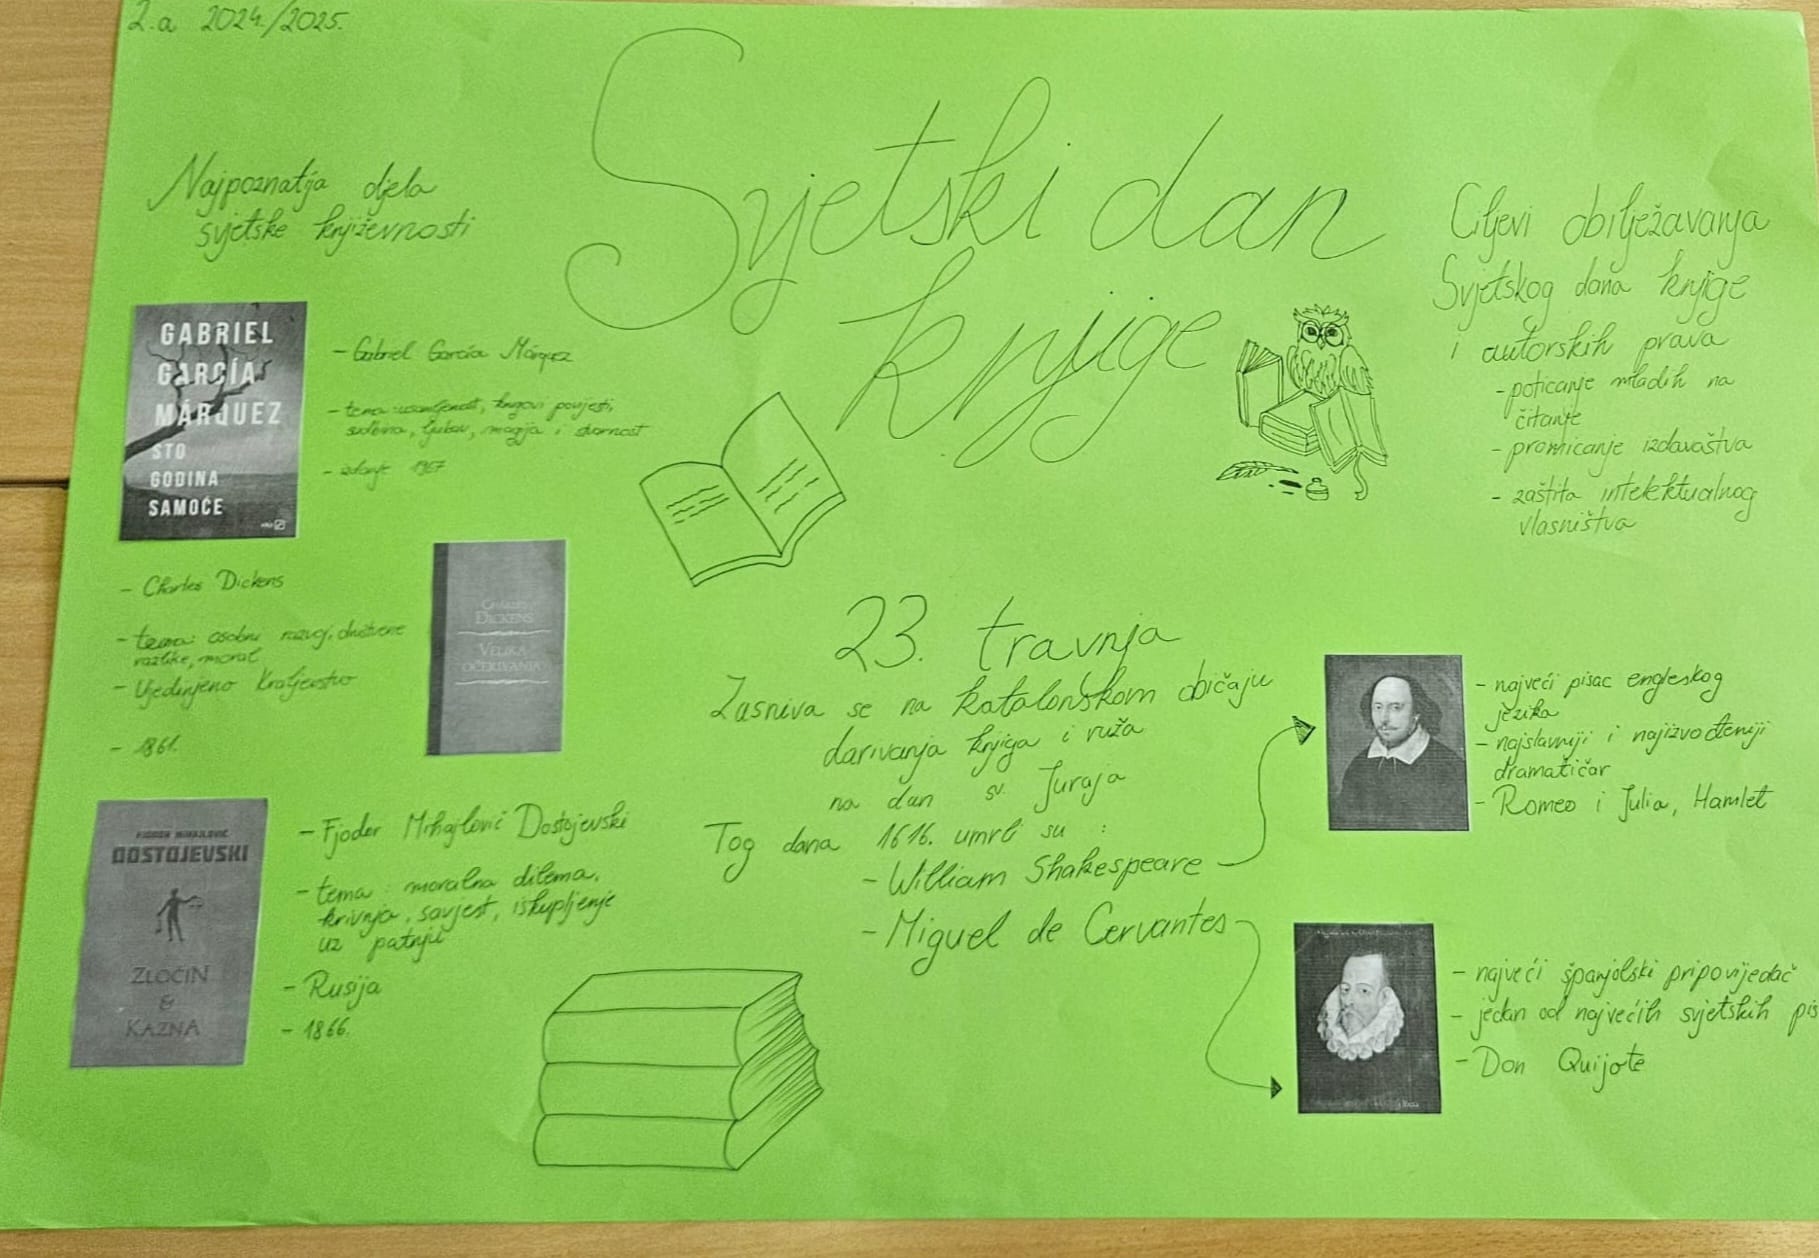 2.a 2024./2025.
Svjetski dan
knjige
Najpoznatija djela
svjetske književnosti
GABRIEL
GARCÍA
MÁRQUEZ
STO
GODINA
SAMOĆE
- Gabriel García Márquez
- tema: usamljenost, krugovi povijesti,
sudbina, ljubav, magija i stvarnost
- izdanje 1967
- Charles Dickens
- tema: osobni razvoj, društvene
razlike, moral
- Ujedinjeno Kraljevstvo
- 1861.
CHARLES
DICKENS
VELIKA
OČEKIVANJA
FJODOR MIHAJLOVIČ
DOSTOJEVSKI
ZLOČIN
&
KAZNA
- Fjodor Mihajlovič Dostojevski
- tema: moralna dilema,
krivnja, savjest, iskupljenje
uz patnju
- Rusija
- 1866.
23. travnja
Zasniva se na katalonskom običaju
darivanja knjiga i ruža
na dan sv. Juraja
Tog dana 1616. umrli su :
- William Shakespeare
- Miguel de Cervantes
Ciljevi obilježavanja
Svjetskog dana knjige
i autorskih prava
- poticanje mladih na
čitanje
- promicanje izdavaštva
- zaštita intelektualnog
vlasništva
- najveći pisac engleskog
jezika
- najslavniji i najizvođeniji
dramatičar
- Romeo i Julia, Hamlet
- najveći španjolski pripovijedač
- jedan od najvećih svjetskih pis
- Don Quijote